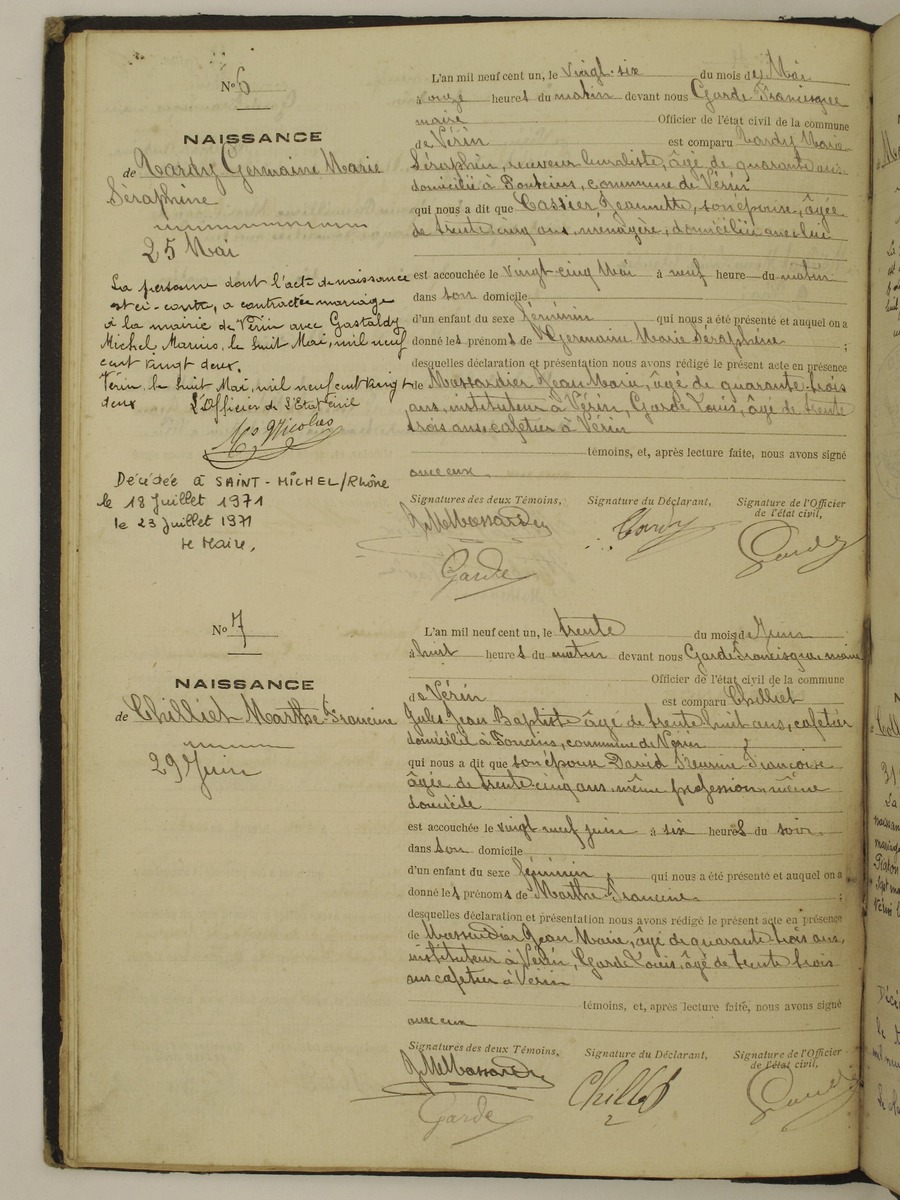 N° 6
NAISSANCE
de Tardy Germaine Marie
Séraphine
25 Mai
La personne dont l'acte de naissance
est ci-contre, a contractée mariage
à la mairie de Vérin avec Gastaldy
Michel Marius, le huit Mai, mil neuf
cent vingt deux.
Vérin, le huit Mai, mil neuf cent vingt
deux L'Officier de l'Etat Civil
Nicolas
Décédée à SAINT-MICHEL/Rhône
le 18 Juillet 1971
le 23 Juillet 1971
Le Maire,
L'an mil neuf cent un, le vingt-six du mois de Mai
à onze heures du matin devant nous Garde Francisque
maire Officier de l'état civil de la commune
de Vérin est comparu Tardy Marie
Séraphin, receveur buraliste, âgé de quarante ans
domicilié à commune de Vérin
qui nous a dit que Cassier Jeannette, son épouse, âgée
de trente cinq ans, ménagère, domiciliée avec lui
est accouchée le vingt-cinq Mai à neuf heure du matin
dans son domicile
d'un enfant du sexe féminin qui nous a été présenté et auquel on a
donné les prénoms de Germaine Marie Séraphine ;
desquelles déclaration et présentation nous avons rédigé le présent acte en présence
de Massardier Jean Marie, âgé de quarante-trois
ans, instituteur à Vérin, Garde Louis, âgé de trente
trois ans, cafetier à Vérin
témoins, et, après lecture faite, nous avons signé
avec eux
Signatures des deux Témoins, Signature du Déclarant, Signature de l'Officier
de l'état civil,
JM Massardier Tardy Garde
Garde
N° 7
NAISSANCE
de Chilliet Marthe-Francine
29 Juin
L'an mil neuf cent un, le trente du mois de Juin
à huit heures du matin devant nous Garde Francisque maire
Officier de l'état civil de la commune
de Vérin est comparu Chilliet
Jules Jean Baptiste âgé de trente huit ans, cafetier
domicilié à commune de Vérin
qui nous a dit que son épouse David Françoise
âgée de trente-cinq ans, même profession, même
domicile
est accouchée le vingt neuf juin à six heures du soir
dans son domicile
d'un enfant du sexe féminin qui nous a été présenté et auquel on a
donné les prénoms de Marthe-Francine ;
desquelles déclaration et présentation nous avons rédigé le présent acte en présence
de Massardier Jean Marie, âgé de quarante trois ans,
instituteur à Vérin, Garde Louis, âgé de trente trois
ans cafetier à Vérin
témoins, et, après lecture faite, nous avons signé
avec eux
Signatures des deux Témoins, Signature du Déclarant, Signature de l'Officier
de l'état civil,
JM Massardier Chilliet Garde
Garde